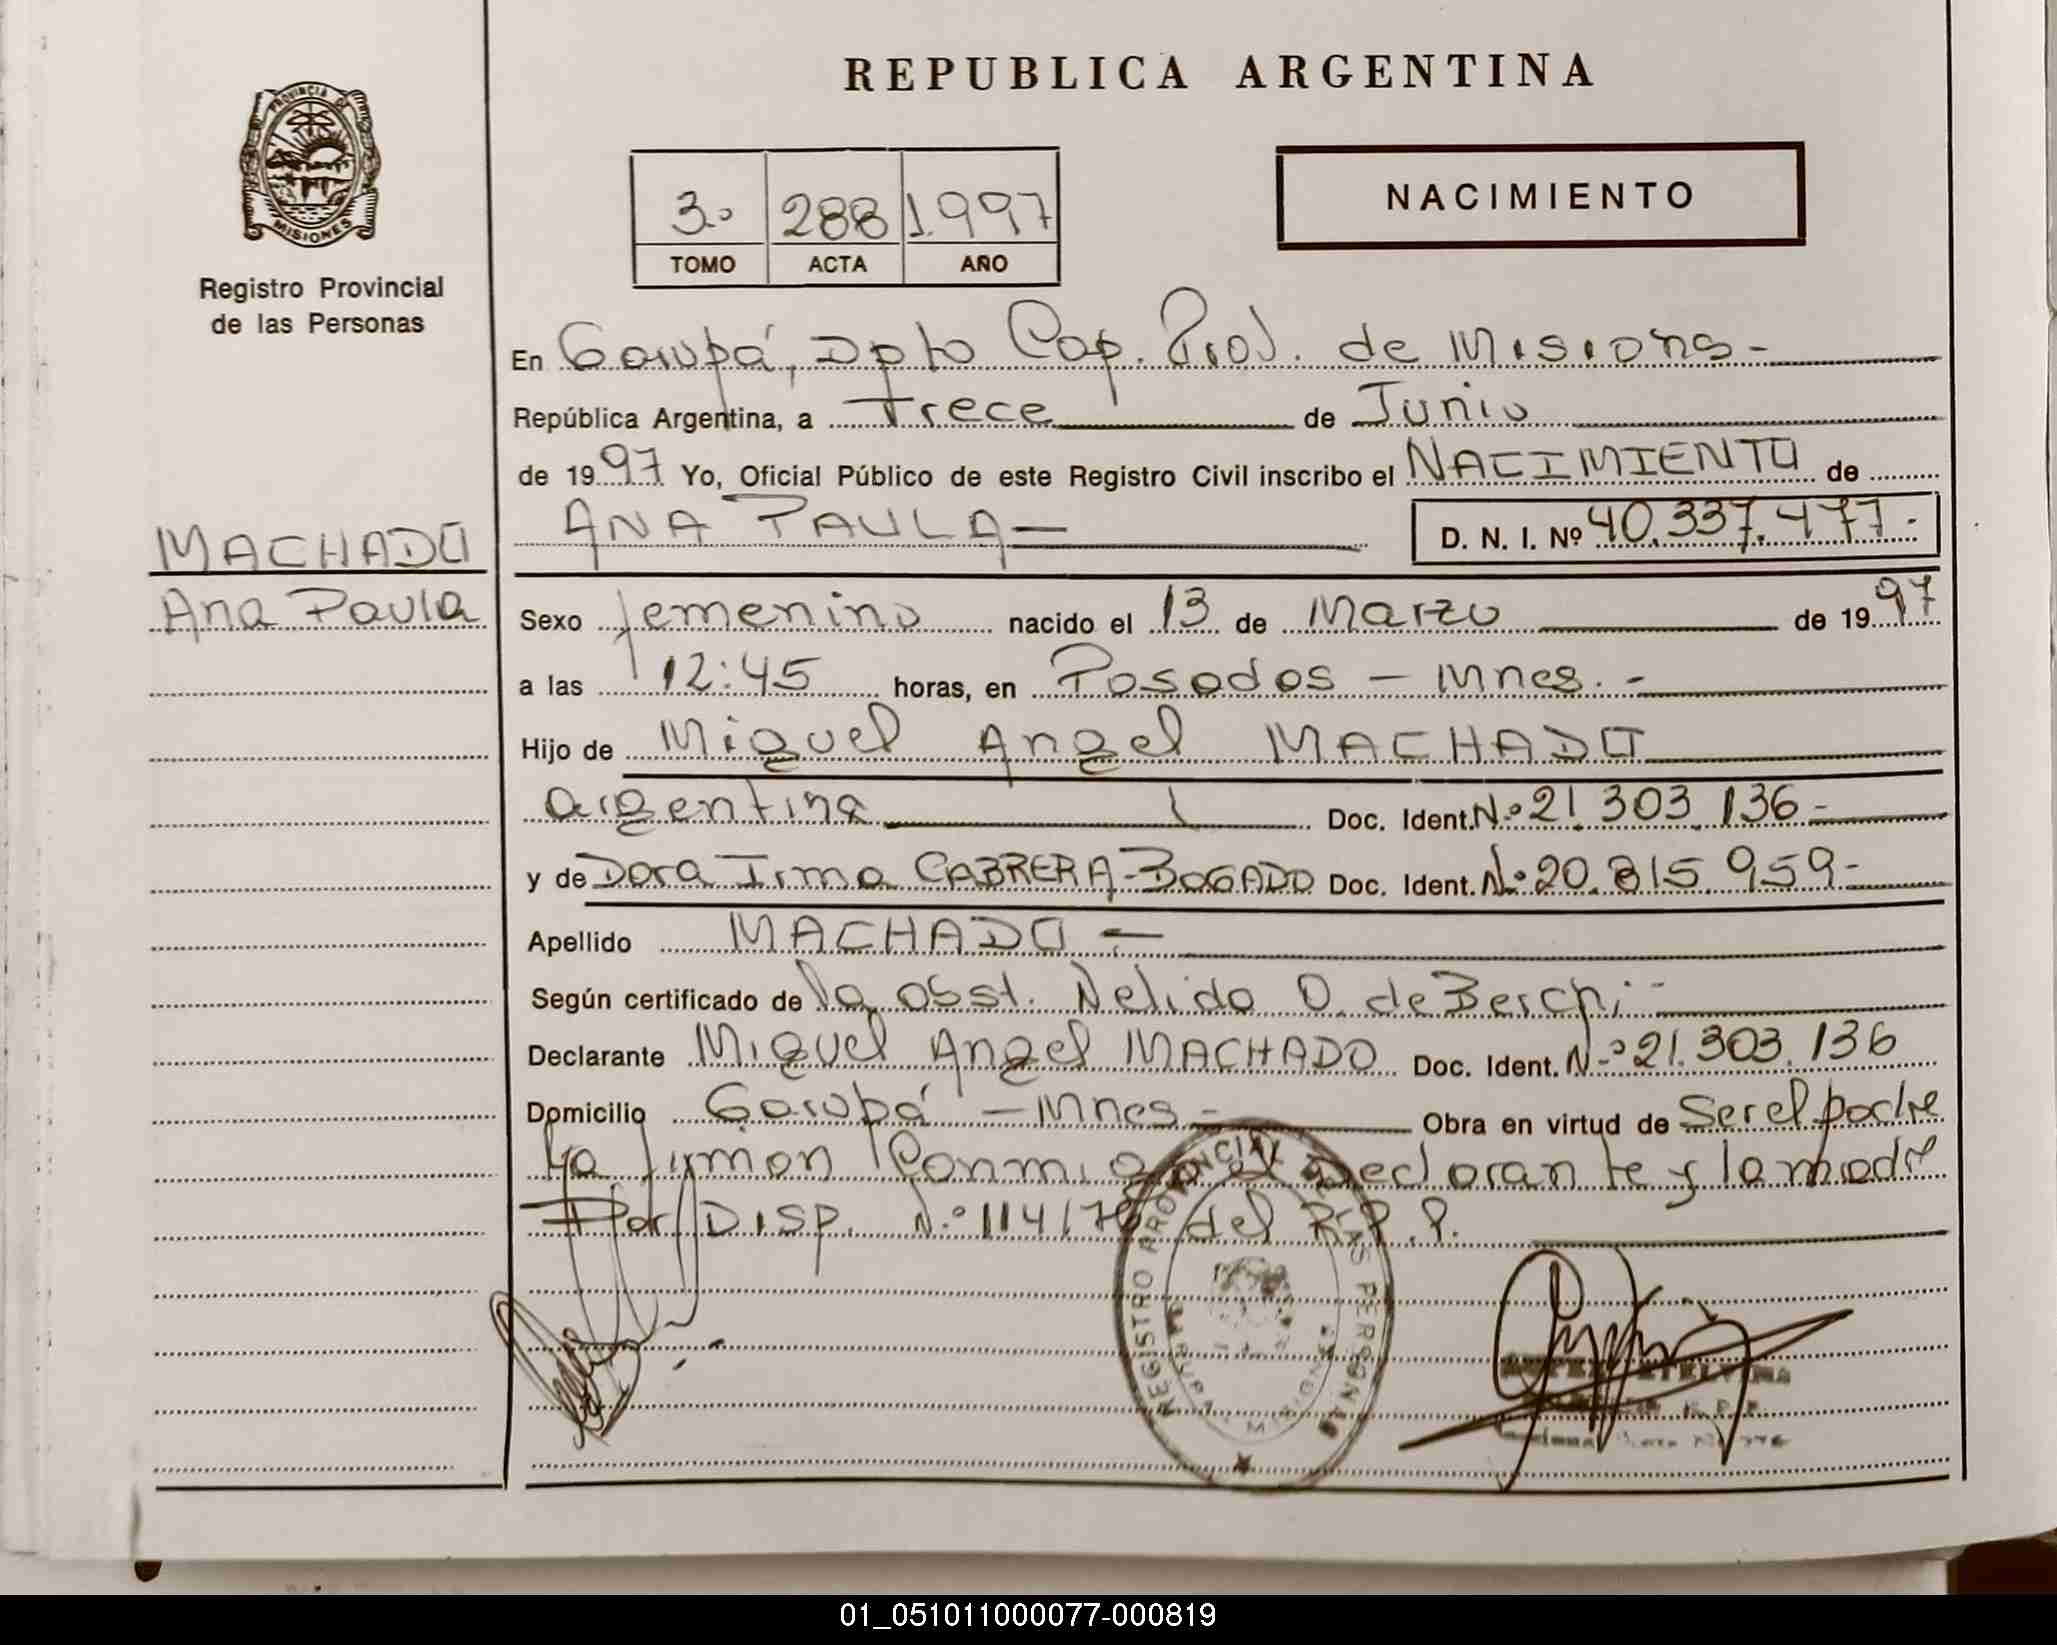 REPUBLICA ARGENTINA
PROVINCIA DE
MISIONES
Registro Provincial
de las Personas
3º 288 1.997
TOMO ACTA AÑO
NACIMIENTO
En Garupá, Dpto Cap. Prov. de Misiones-
República Argentina, a Trece de Junio
de 1997 Yo, Oficial Público de este Registro Civil inscribo el NACIMIENTO de
MACHADO
Ana Paula
ANA PAULA— D. N. I. Nº 40.337.477.-
Sexo femenino nacido el 13 de Marzo de 1997
a las 12:45 horas, en Posadas - Mnes. -
Hijo de Miguel Angel MACHADO
argentina Doc. Ident. Nº 21.303.136-
y de Dora Irma CABRERA-BOGADO Doc. Ident. Nº 20.815.959-
Apellido MACHADO -
Según certificado de la obst. Nelida O. de Berchi -
Declarante Miguel Angel MACHADO Doc. Ident. Nº 21.303.136
Domicilio Garupá - Mnes - Obra en virtud de Ser el padre
Conmigo el Declarante y la madre
Por DISP. Nº 114/70 del R.P.P.
REGISTRO PROVINCIAL DE LAS PERSONAS
01_051011000077-000819